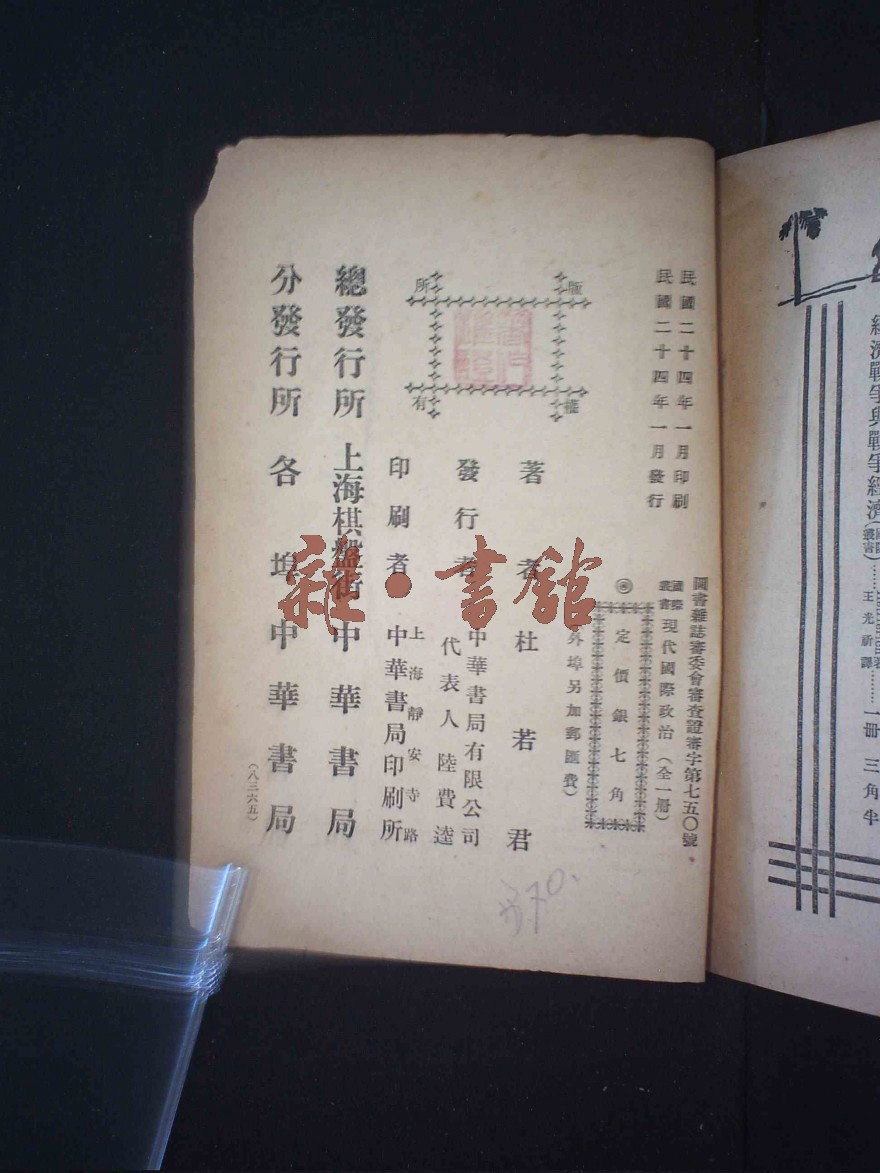 經濟戰爭與戰爭經濟(國際叢書)……王光祈譯……一册 三角半
圖書雜誌審委會審查證審字第七五〇號
民國二十四年一月印刷
民國二十四年一月發行
國際叢書 現代國際政治(全一册)
◎定價銀七角
外埠另加郵匯費)
版權所有
著者 杜若君
發行者 中華書局有限公司
代表人 陸費逵
印刷者 上海靜安寺路
中華書局印刷所
總發行所 上海棋盤街 中華書局
分發行所 各埠中華書局
(八三六五)
370.
雜·書館